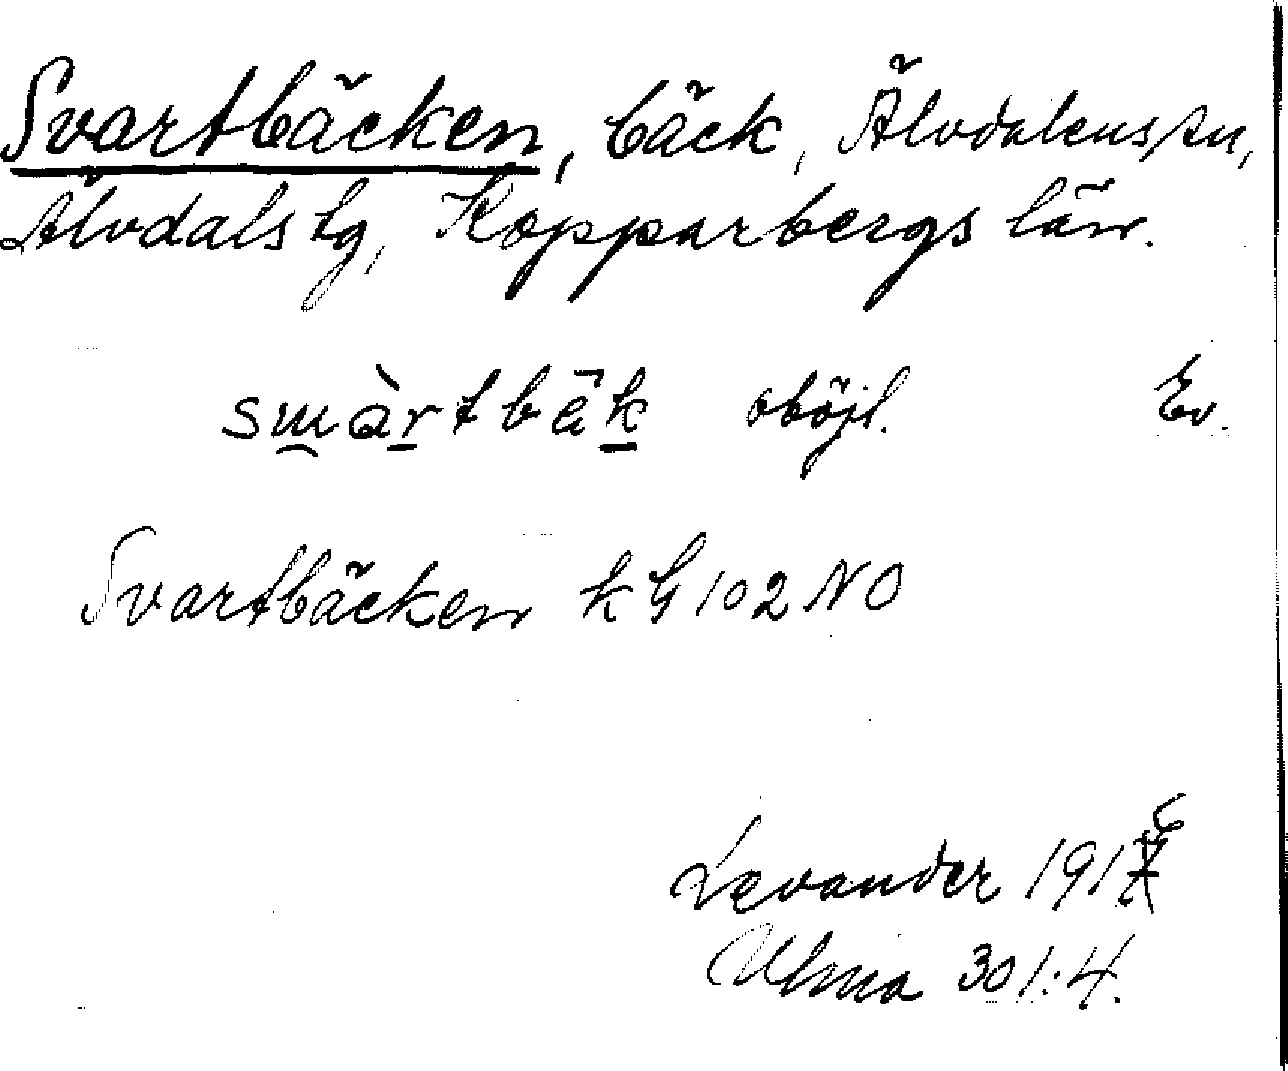 Svartbäcken, bäck, Älvdalens sn,
Älvdals tg, Kopparbergs län.
smàrtbäk oböjl. Ev.
Svartbäcken kG 102 NO
Levander 191
Ulma 301:4.